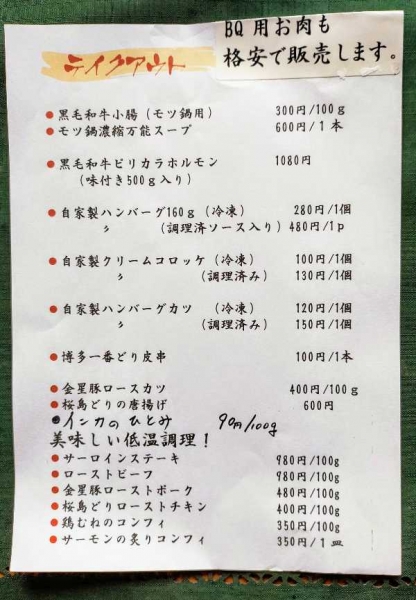 テイクアウト
BQ 用お肉も
格安で販売します。
●黒毛和牛小腸（モツ鍋用） 300円/100g
●モツ鍋濃縮万能スープ 600円/1本
●黒毛和牛ピリカラホルモン 1080円
（味付き500g入り）
●自家製ハンバーグ160g（冷凍） 280円/1個
〃 （調理済ソース入り）480円/1p
●自家製クリームコロッケ（冷凍） 100円/1個
〃 （調理済み） 130円/1個
●自家製ハンバーグカツ （冷凍） 120円/1個
〃 （調理済み） 150円/1個
●博多一番どり皮串 100円/1本
●金星豚ロースカツ 400円/100g
●桜島どりの唐揚げ 600円
●インカのひとみ 90円/100g
美味しい低温調理！
●サーロインステーキ 980円/100g
●ローストビーフ 980円/100g
●金星豚ローストポーク 480円/100g
●桜島どりローストチキン 400円/100g
●鶏むねのコンフィ 350円/100g
●サーモンの炙りコンフィ 350円/1皿